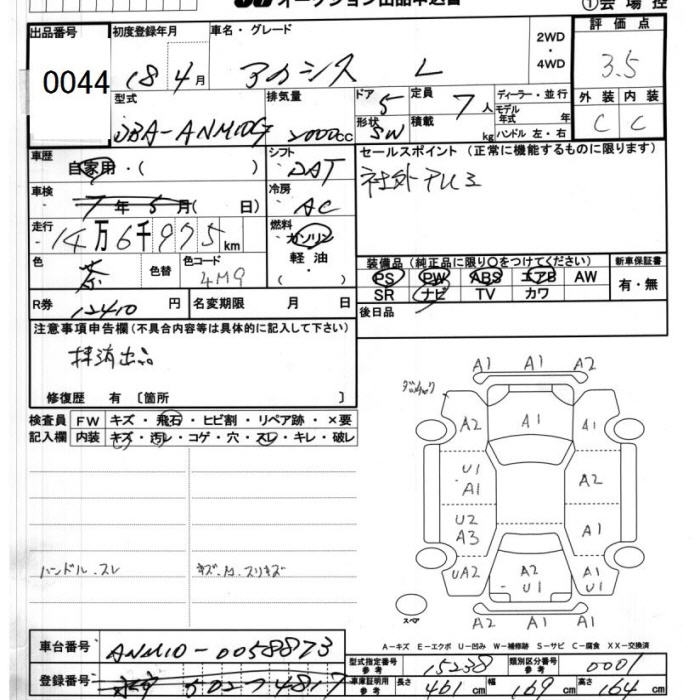 オークション出品申込書
①会場控
出品番号 0044
初度登録年月 18年4月
車名・グレード アイシス L
2WD・4WD
評価点 3.5
型式 DBA-ANM10G
排気量 2000cc
ドア 5 形状 SW
定員 7人 積載 kg
ディーラー・並行
モデル年式 年
ハンドル 左・右
外装 内装
C C
車歴 自家用・( )
シフト DAT
セールスポイント (正常に機能するものに限ります)
社外アルミ
車検 7年5月( 日)
冷房 AC
走行 14万6千975km
燃料 ガソリン 軽油・( )
色 茶 色替
色コード 4M9
装備品 (純正品に限り○をつけてください)
PS PW ABS エアB AW
SR ナビ TV カワ
新車保証書
有・無
R券 12410円
名変期限 月 日
後日品
注意事項申告欄 (不具合内容等は具体的に記入して下さい)
抹消出品
修復歴 有 〔箇所 〕
検査員記入欄
FW キズ・飛石・ヒビ割・リペア跡・×要
内装 キズ・汚レ・コゲ・穴・スレ・キレ・破レ
ハンドル.スレ
A1 A1 A2
A2 A1 A1
U1 A1 A2
U2 A3 A1
UA2 A2 U1 A1 U1
A1 A1 A2
スペア
A－キズ E－エクボ U－凹み W－補修跡 S－サビ C－腐食 XX－交換済
車台番号 ANM10-0058873
登録番号
型式指定番号 参考 15238
類別区分番号 参考 0001
車庫証明用 参考 長さ 461cm 幅 169cm 高さ 164cm